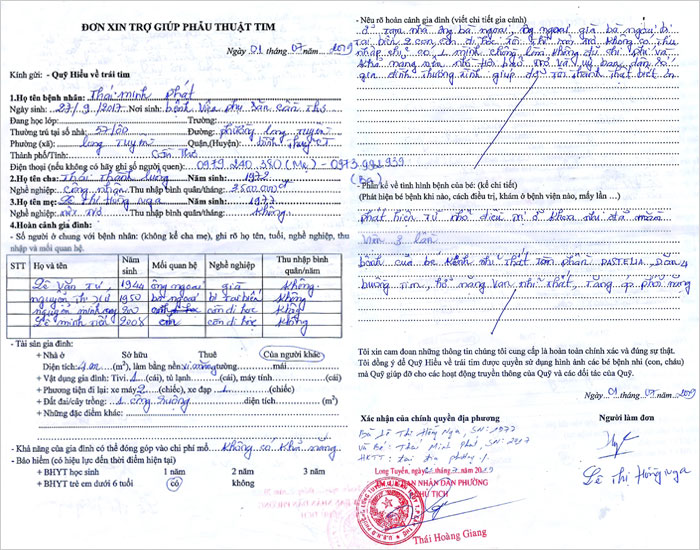 ĐƠN XIN TRỢ GIÚP PHẪU THUẬT TIM
Ngày 01 tháng 07 năm 2019
Kính gửi: - Quỹ Hiểu về trái tim
1.Họ tên bệnh nhân: Thái Minh Phát
Ngày sinh: 27/9/2017 Nơi sinh: bệnh viện phụ sản cần thơ
Đang học lớp: Trường:
Thường trú tại số nhà: 57/00 Đường: phường long tuyền
Phường (xã): long Tuyền Quận,(Huyện): bình thủy CT
Thành phố/Tỉnh: Cần Thơ
Điện thoại (nếu không có hãy ghi số người quen): 0979 240 380 (Mẹ) - 0973 992 939 (Ba)
2.Họ tên cha: Thái Thành Lung Năm sinh: 1972
Nghề nghiệp: công nhân Thu nhập bình quân/tháng: 2600.000đ
3.Họ tên mẹ: Lê thị Hồng Nga Năm sinh: 1977
Nghề nghiệp: Thu nhập bình quân/tháng: không
4.Hoàn cảnh gia đình:
- Số người ở chung với bệnh nhân: (không kể cha mẹ), ghi rõ họ tên, tuổi, nghề nghiệp, thu
nhập và mối quan hệ.
STT Họ và tên Năm sinh Mối quan hệ Nghề nghiệp Thu nhập bình quân/năm
Lê Văn Tư, 1944 ông ngoại già không
nguyễn thị 1950 bà ngoại bị tai biến không
nguyễn minh con còn đi học không
Lê minh 2008 con còn đi học không
- Tài sản gia đình:
+ Nhà ở Sở hữu Thuê Của người khác
Diện tích: 4m (m²), làm bằng nền xi măng tường mái
+ Vật dụng gia đình: Tivi 1 (cái), tủ lạnh (cái), máy tính (cái)
+ Phương tiện đi lại: xe máy 2 (chiếc), xe đạp 1 (chiếc)
+ Đất đai/cây trồng: 1 công ruộng diện tích (m²)
+ Những đặc điểm khác:
- Khả năng của gia đình có thể đóng góp vào chi phí mổ: không có khả năng
- Bảo hiểm (có hiệu lực đến thời điểm hiện tại)
+ BHYT học sinh 1 năm 2 năm 3 năm
+ BHYT trẻ em dưới 6 tuổi có không
- Nêu rõ hoàn cảnh gia đình (viết chi tiết gia cảnh)
ở nhà ông bà ngoại, ông ngoại già bà ngoại bị
tai biến 2 con còn đi học tôi ở nhà không có thu
nhập chỉ có 1 mình chồng làm không đủ chi
khả năng
gia đình thường xin giúp đỡ tôi thành thật biết ơn
- Phần kể về tình hình bệnh của bé: (kể chi tiết)
(Phát hiện bệnh khi nào, cách điều trị, khám ở bệnh viện nào, mấy lần ...)
phát hiện từ nhỏ điều trị ở khoa
3 lần
bệnh của bé kênh nhĩ thất toàn phần PASTELIA, Dãn
buồng tim, hở nặng van nhĩ thất, Tăng áp phổi nặng
Tôi xin cam đoan những thông tin chúng tôi cung cấp là hoàn toàn chính xác và đúng sự thật.
Tôi đồng ý để Quỹ Hiểu về trái tim được quyền sử dụng hình ảnh các bé bệnh nhi (con, cháu)
mà Quỹ giúp đỡ cho các hoạt động truyền thông của Quỹ và các đối tác của Quỹ.
Ngày, 01 tháng, 07 năm, 2019
Xác nhận của chính quyền địa phương
Người làm đơn
Bà Lê Thị Hồng Nga, SN: 1977
và Bé: Thái Minh Phát, SN: 2017
HKTT: tại địa phương
Long Tuyền, 7 2019
ỦY BAN NHÂN DÂN PHƯỜNG
CHỦ TỊCH
Thái Hoàng Giang
Lê Thị Hồng Nga